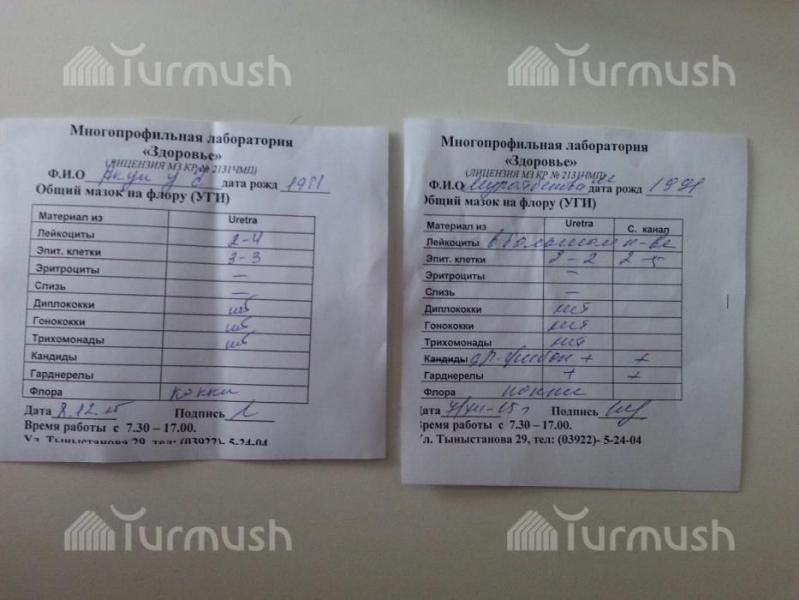 Turmush
Turmush
Многопрофильная лаборатория
«Здоровье»
(ЛИЦЕНЗИЯ МЗ КР № 2131ЧМП)
Ф.И.О дата рожд 1981
Общий мазок на флору (УГИ)
Материал из Uretra
Лейкоциты 2-4
Эпит. клетки 2-3
Эритроциты —
Слизь —
Диплококки нет
Гонококки нет
Трихомонады нет
Кандиды
Гарднерелы
Флора кокки
Дата 8.12.15 Подпись
Время работы с 7.30 – 17.00.
Ул. Тыныстанова 29, тел: (03922)- 5-24-04
Многопрофильная лаборатория
«Здоровье»
(ЛИЦЕНЗИЯ МЗ КР № 2131ЧМП)
Ф.И.О дата рожд 1991
Общий мазок на флору (УГИ)
Материал из Uretra С. канал
Лейкоциты в большом к-ве
Эпит. клетки 2-2 2-5
Эритроциты —
Слизь —
Диплококки нет
Гонококки нет
Трихомонады нет
Кандиды + +
Гарднерелы + +
Флора кокки
Дата Подпись
Время работы с 7.30 – 17.00.
Ул. Тыныстанова 29, тел: (03922)- 5-24-04
Turmush
Turmush